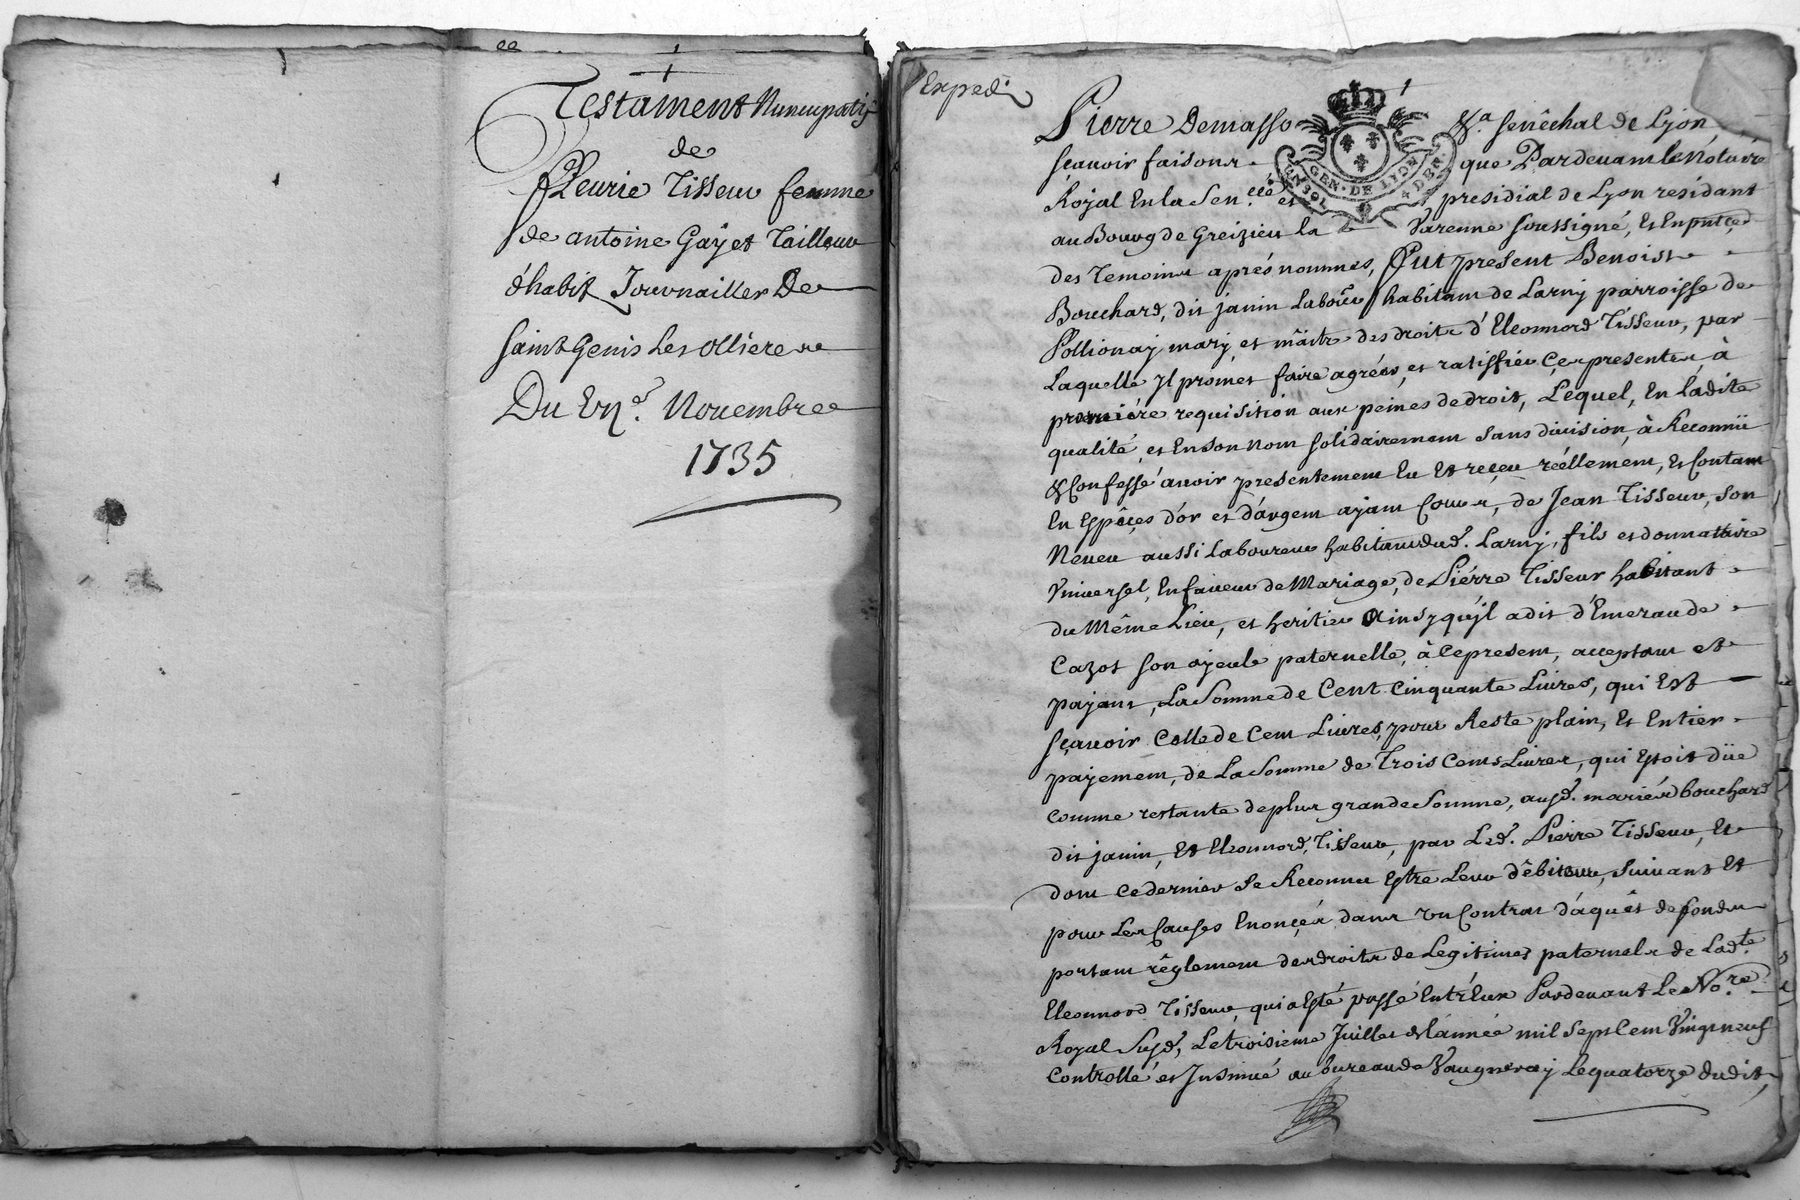 Testament Nuncupatif
de
Fleurie Tisseur femme
de antoine Gayet Tailleur
d'habit Journailler De
saint Genis Les Ollieres
Du Vn.e Novembre
1735
Exped.
Pierre Demasso &.a senêchal de Lyon
sçavoir faisons que Pardevant le Notaire
Royal En la Sen.cée et presidial de Lyon residant
au Bourg de Greizieu la Varenne soussigné, Et En
des Temoins aprés nommés, fut present Benoist
Bouchard, dit janin laboûr habitant de Larny parroisse de
Pollionay mary et mâitre des droits d'Eleonnord Tisseur, par
Laquelle Jl promet faire agréer, et ratiffier Ces presentes à
premiére requisition aux peines de droit, Lequel, En ladite
qualité, et En son nom solidairement sans division, à Reconnü
& Confessé avoir presentement Eu Et reçeu réellement, Et Contant
En Espêçes d'or et d'argent ayant Cours, de Jean Tisseur, son
Neveu aussi Laboureur habitant dud. Larny, fils et donnattaire
Vniversel, En faveur de Mariage, de Piérre Tisseur habitant
du Même Lieu, et heritier Ainsy qu'jl a dit d'Emeraude
Cazot son ayeule paternelle, à Ce present, acceptant et
payant, La Somme de Cent Cinquante Livres, qui Est
sçavoir Celle de Cent Livres, pour Reste plain, Et Entier
payement, de La Somme de Trois Cents Livres, qui Estoit düe
comme restante de plus grande Somme, ausd. mariés bouchard
dit janin, Et Eleonnord, Tisseur, par Led. Pierre Tisseur, Et
dont ce dernier se Reconnu Estre Leur dêbiteur, suivant Et
pour Les Causes Enonçéés dans vn Contrat d'áquêt de fonds
portant rêglement des droits de Legitimes paternels de Lad.te
Eleonnord Tisseur, qui a Esté passé Entr'Eux Pardevant Le No.re
Royal Susd, Le troisieme Juillet de l'année mil Sept Cent Vingt neuf
Controllé et Jnsinué au bureau de Vaugneray Le quatorze dudit,